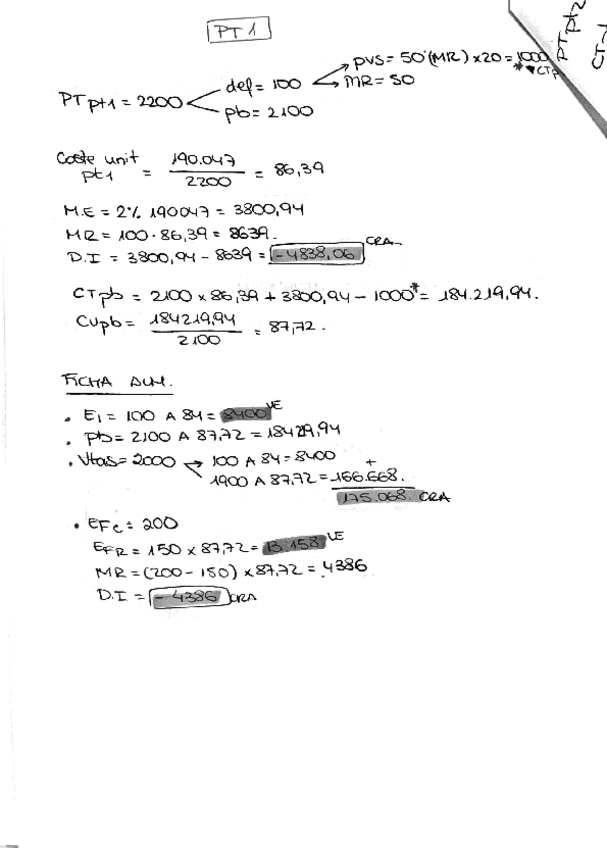 PT 1
PT pt1 = 2200
def = 100
PVS = 50 (MR) x 20 = 1000
* CTp
MR = 50
pb = 2100
PT pt2
CT
Coste unit pt1 = 190.047 / 2200 = 86,39
M.E = 2% 190047 = 3800,94
MR = 100 · 86,39 = 8639.
D.I = 3800,94 - 8639 = -4838,06 CRA
CTpb = 2100 x 86,39 + 3800,94 - 1000* = 184.219,94.
CUpb = 184219,94 / 2100 = 87,72.
FICHA ALM.
• Ei = 100 A 84 = 8400 VE
• Pb = 2100 A 87,72 = 18429,94
• Vtas = 2000 → 100 A 84 = 8400
+
1900 A 87,72 = 166.668.
175.068 CRA
• EFc = 200
EFR = 150 x 87,72 = 13.158 VE
MR = (200 - 150) x 87,72 = 4386
D.I = - 4386 CRA